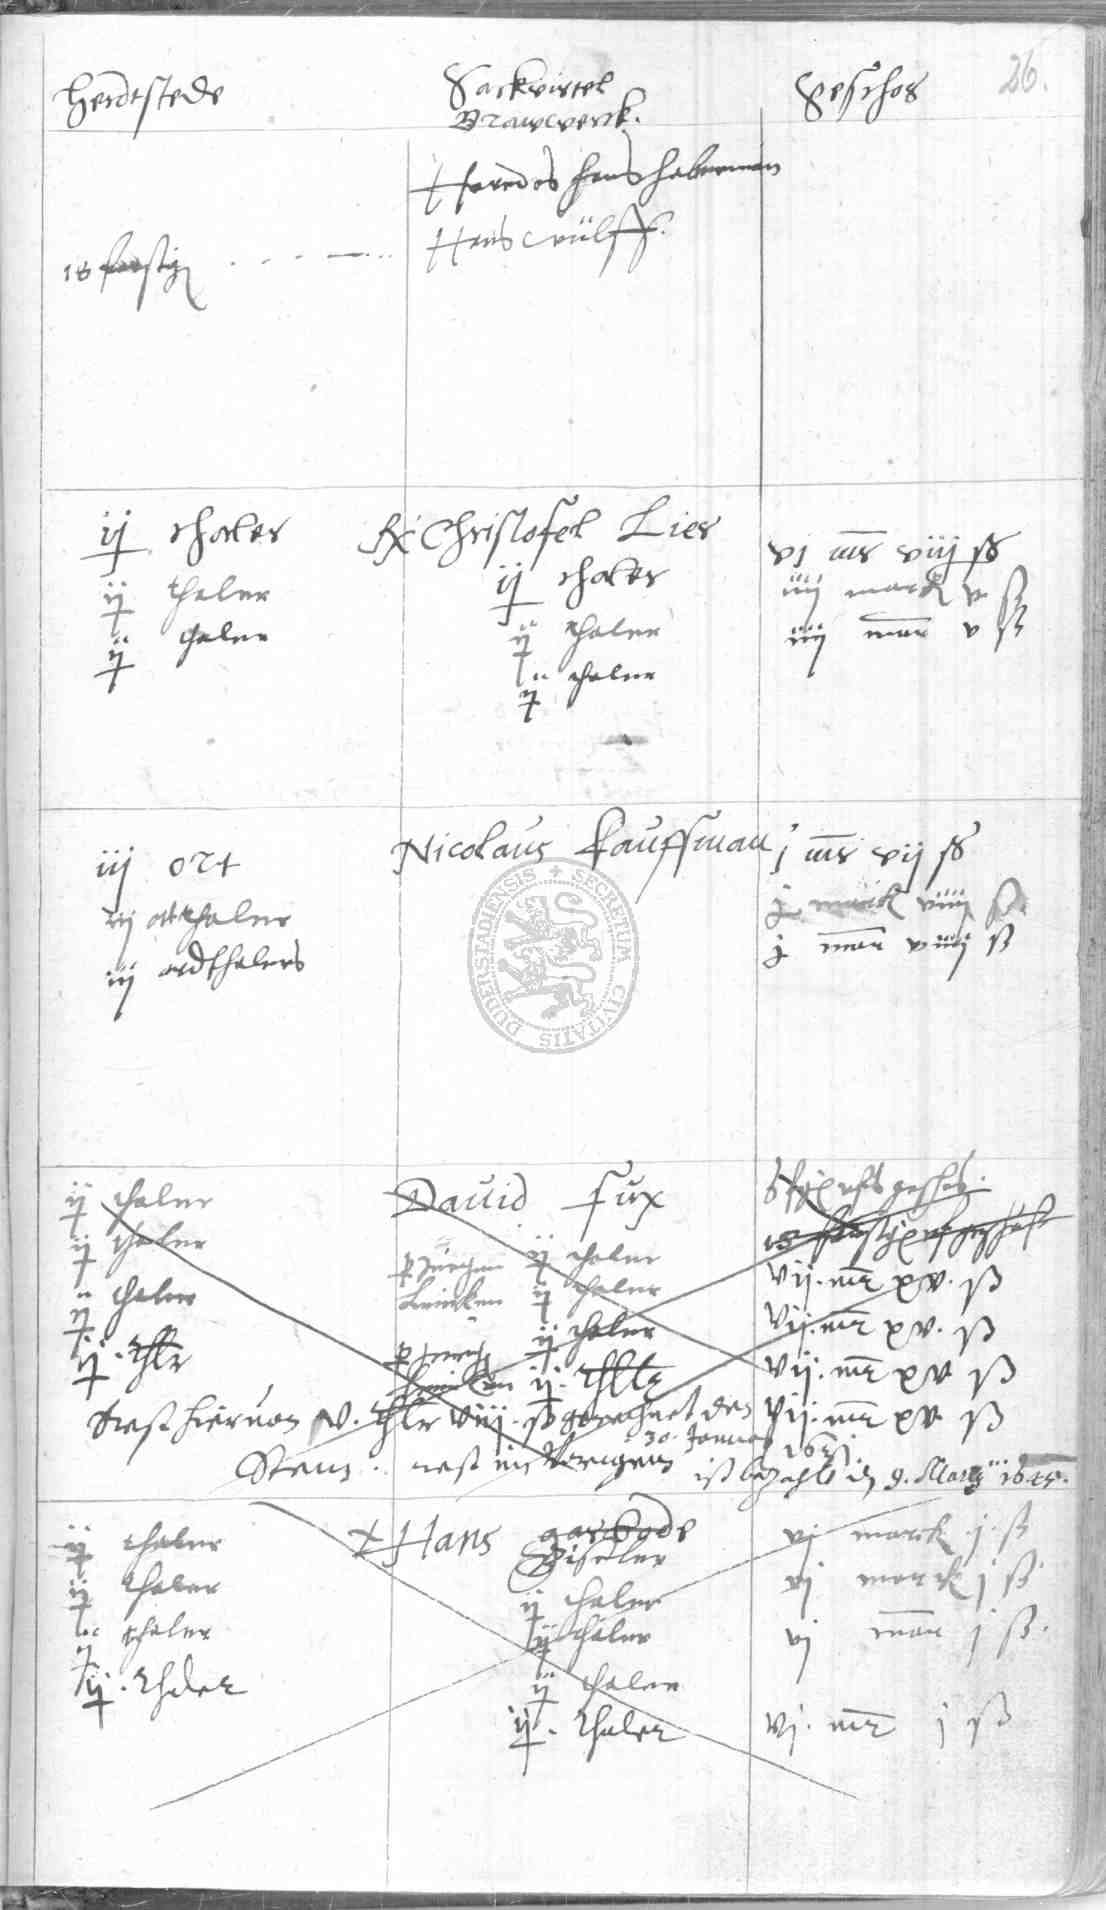 26.
Herdtstede
Sackvirtel
Brawwerck.
Geschos
Heredes Hans Haberman
Hans Wülff.
18
ij thaler
Christofel Lies
vj mr viij ß
ij thaler
ij thaler
iiij marck v ß
ij thaler
ij thaler
iiij mar v ß
ij thaler
iij ort
Nicolaus Kauffman
j mr vij ß
iij ort thaler
j marck viiij ß
iij ordthalers
j mar viiij ß
DUDERSTADIENSIS SECRETUM CIVITATIS
ij thaler
David Fux
ij thaler
p Jürgen ij thaler
vij. mr xv. ß
ij thaler
ij thaler
vij. mr xv. ß
ij thaler
ij. thlr
vij. mr xv ß
ij. thlr
Rest hiervon v. thlr viij. ß gerechnet den
vij. mr xv ß
30. Januar 1651
rest im vorigen ist bezahlt den 9. Martii 1645.
ij thaler
Hans
Giseler
vj marck j. ß
ij thaler
ij thaler
vj marck j ß
ij thaler
ij thaler
vj mar j ß.
ij. thaler
ij thaler
ij. thaler
vj. mr j ß